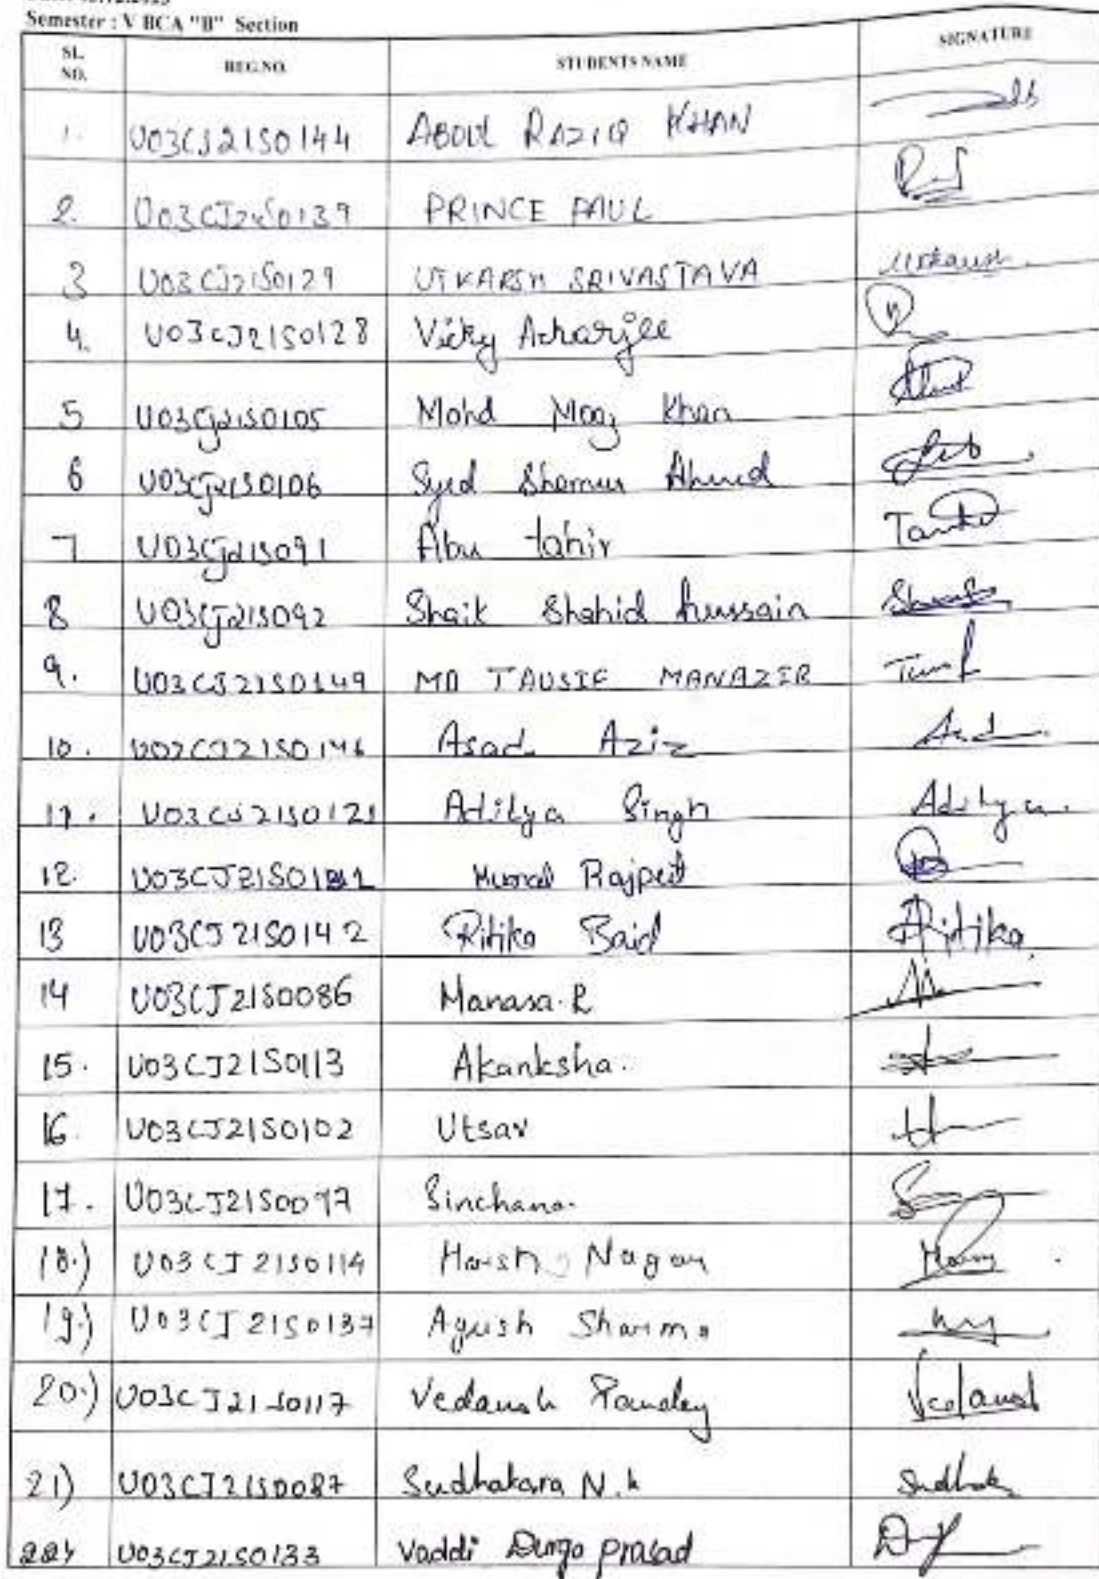 Semester : V BCA "B" Section
SL. NO. REG.NO. STUDENTS NAME SIGNATURE
1. U03CJ21S0144 ABDUL RAZIQ KHAN
2. U03CJ21S0139 PRINCE PAUL
3 U03CJ21S0129 UTKARSH SRIVASTAVA Utkarsh
4. U03CJ21S0128 Vicky Acharjee
5 U03CJ21S0105 Mohd Maaz Khan
6 U03CJ21S0106 Syed Ahmed
7 U03CJ21S091 Abu tahir
8 U03CJ21S092 Shaik Shahid hussain
9. U03CJ21S0149 MD TAUSIF MANAZIR
10. U03CJ21S0146 Asad Aziz
11. U03CJ21S0121 Aditya Singh Aditya.
12. Rajput
13 U03CJ21S0142 Ritika Baid Ritika
14 U03CJ21S0086 Manasa.R
15. U03CJ21S0113 Akanksha.
16. U03CJ21S0102 Utsav
17. U03CJ21S0097 Sinchana.
18.) U03CJ21S0114 Harsh Nagar
19.) U03CJ21S0137 Ayush Sharma
20.) U03CJ21S0117 Vedansh Pandey Vedansh
21) U03CJ21S0087 Sudhakara N.k Sudhak
22) U03CJ21S0133 Vaddi Durga prasad